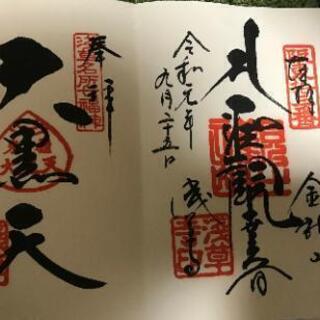 奉拝
金龍山
聖観世音
浅草寺
令和元年
九月二十五日
奉拝
浅草名所七福神
大黒天